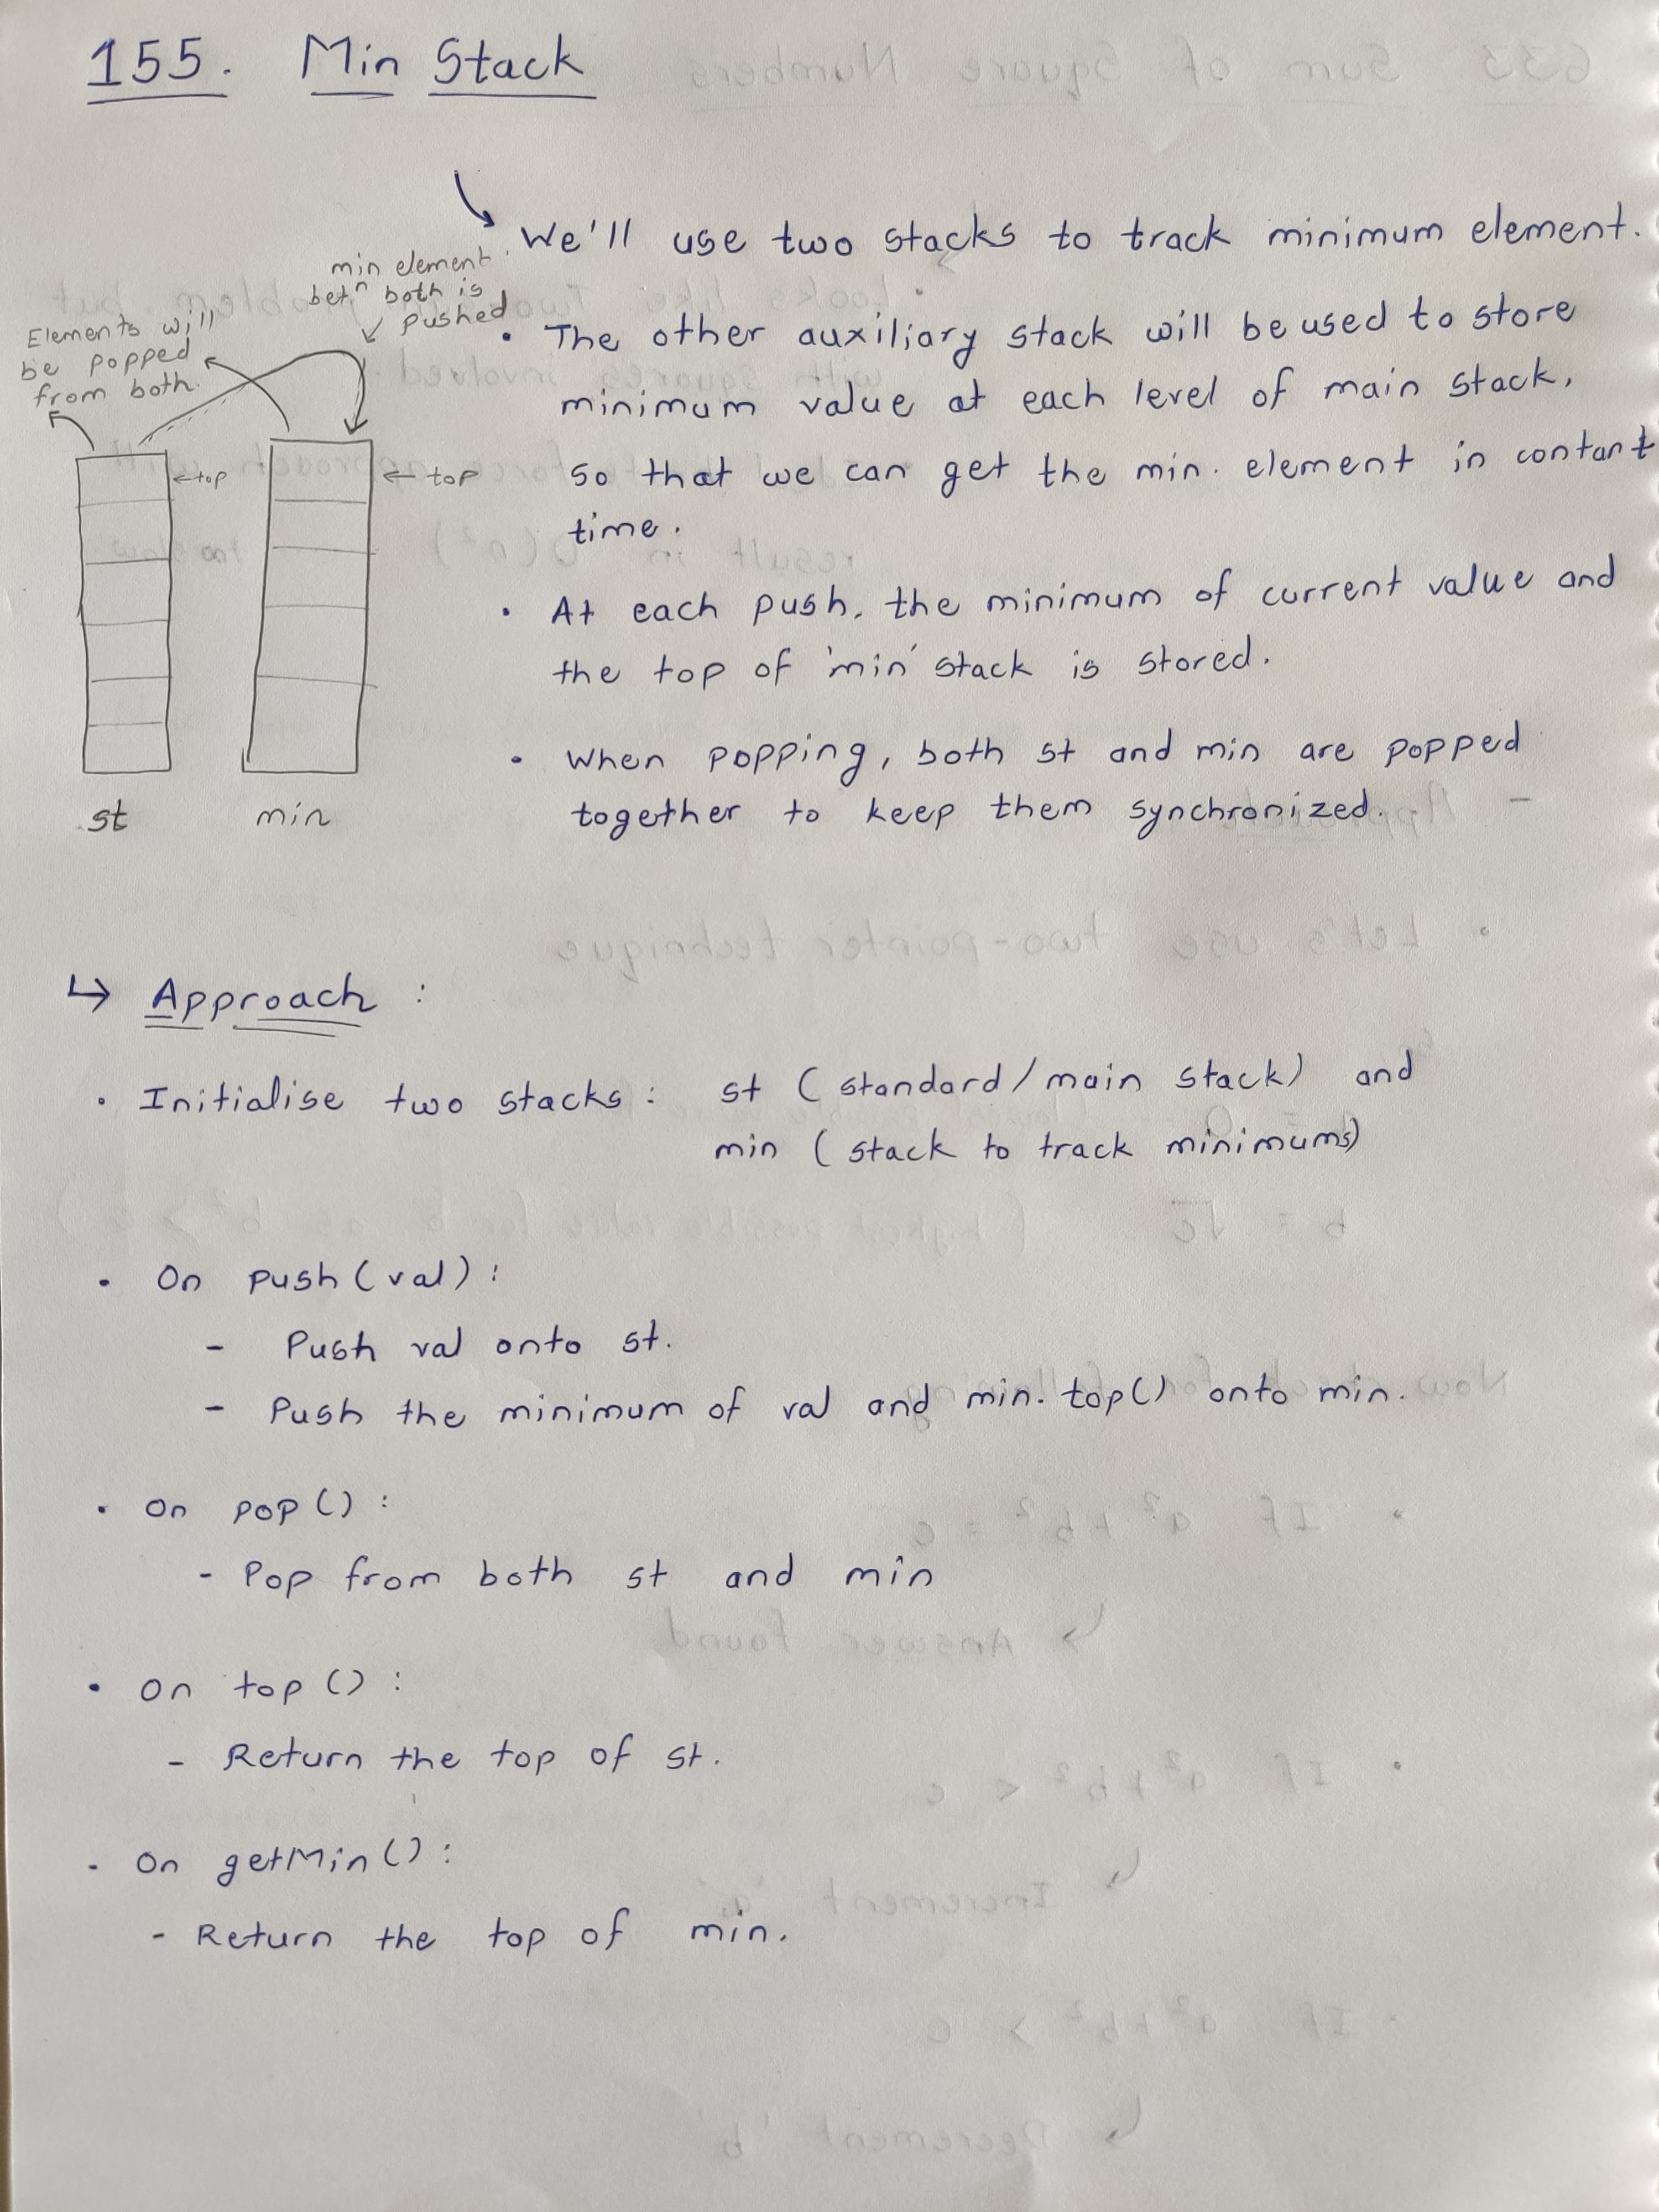 155. Min Stack
We'll use two stacks to track minimum element.
min element
betn both is
pushed
Elements will
be popped
from both.
• The other auxiliary stack will be used to store
minimum value at each level of main stack,
so that we can get the min. element in contant
time.
← top
← top
• At each push, the minimum of current value and
the top of 'min' stack is stored.
• When popping, both st and min are popped
together to keep them synchronized.
st
min
↳ Approach :
• Initialise two stacks : st (standard/main stack) and
min (stack to track minimums)
• On push(val) :
- Push val onto st.
- Push the minimum of val and min.top() onto min.
• On pop() :
- Pop from both st and min
• On top() :
- Return the top of st.
- On getMin() :
- Return the top of min.